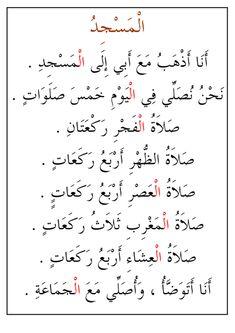 الْمَسْجِدُ
أَنَا أَذْهَبُ مَعَ أَبِي إِلَى الْمَسْجِدِ .
نَحْنُ نُصَلِّي فِي الْيَوْمِ خَمْسَ صَلَوَاتٍ .
صَلَاةُ الْفَجْرِ رَكْعَتَانِ .
صَلَاةُ الظُّهْرِ أَرْبَعُ رَكَعَاتٍ .
صَلَاةُ الْعَصْرِ أَرْبَعُ رَكَعَاتٍ .
صَلَاةُ الْمَغْرِبِ ثَلَاثُ رَكَعَاتٍ .
صَلَاةُ الْعِشَاءِ أَرْبَعُ رَكَعَاتٍ .
أَنَا أَتَوَضَّأُ ، وَأُصَلِّي مَعَ الْجَمَاعَةِ .